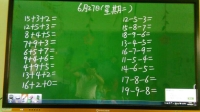 6月27日(星期二)
15+3+2=
12+5+3=
8+4+5=
7+9+3=
6+6+5=
9+4+6=
4+9+5=
13+4+2=
16+2+0=
12-5-3=
15-8-7=
18-9-6=
13-4-5=
16-7-9=
11-5-4=
14-6-5=
17-8-6=
19-9-8=